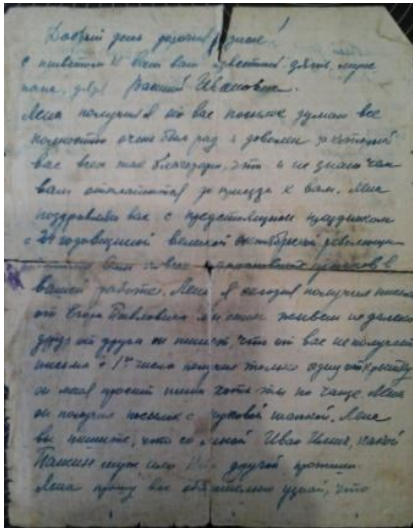 Добрый день дорогие родные!
с приветом к вам ваш известный зять, муж
папа, дядя Иванович.
Лена получил я от вас посылк думаю все
полностью очень был рад и доволен за которой
вас всех так благодарю, что и не знаю чем
вам отплатить за приезда к вам. Лена
поздравляю вас с предстоящим праздником
с 24 годовщиной великой октябрьской революции
в
вашей работе. Лена я сегодня получил письмо
от Павловича мы с ним живем не далеко
друг от друга он пишет, что от вас не получает
письма с 1го числа получил только одну открытку
он меня просит пиши хотя ты по чаще. Лена
он получил посылк с шапкой. Лена
вы пишите, что со мной Иван какой
другой
Лена прошу вас обязательно узнай, что